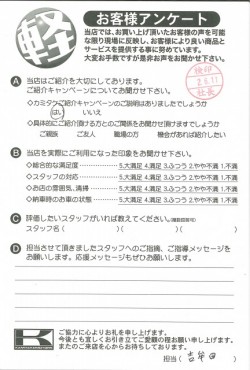 軽
お客様アンケート
当店では、お買い上げ頂いたお客様の声を可能
な限り現場に反映し、お客様により良い商品と
サービスを提供する事に努めています。
大変お手数ですが是非お声をお聞かせ下さい。
A 当店はご紹介を大切にしております。
ご紹介キャンペーンについてお聞かせ下さい。
・カミタウご紹介キャンペーンのご説明はありましたでしょうか
はい いいえ
・具体的にご紹介頂ける方とのご関係をお聞かせ頂けますでしょうか
ご親族 ご友人 職場の方 機会があれば紹介したい
B 当店を実際にご利用になった印象をお聞かせ下さい。
◇総合的な満足度 5.大満足 4.満足 3.ふつう 2.やや不満 1.不満
◇スタッフの対応 5.大満足 4.満足 3.ふつう 2.やや不満 1.不満
◇お店の雰囲気、清掃 5.大満足 4.満足 3.ふつう 2.やや不満 1.不満
◇納車時のお車の状態 5.大満足 4.満足 3.ふつう 2.やや不満 1.不満
C 評価したいスタッフがいれば教えてください。
スタッフ名( )( )( )
D 担当させて頂きましたスタッフへのご指摘、ご指導メッセージを
お願いします。応援メッセージもぜひお願いします。
K
ご協力に心よりお礼を申し上げます。
今後とも宜しくお引き立てご愛顧の程お願い申し上げます。
またのご来店を心からお待ちしております。
担当( )
社長